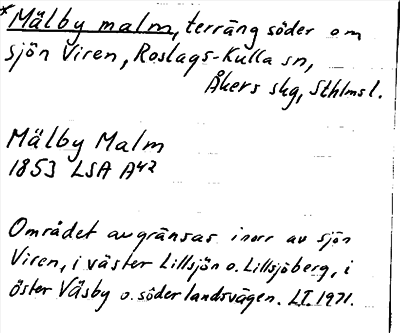 *Mälby malm, terräng söder om
sjön Viren, Roslags-Kulla sn,
Åkers skg, Sthlms l.
Mälby Malm
1853 LSA A42
Området avgränsas i norr av sjön
Viren, i väster Lillsjön o. Lillsjöberg, i
öster Väsby o. söder landsvägen. LI. 1971.